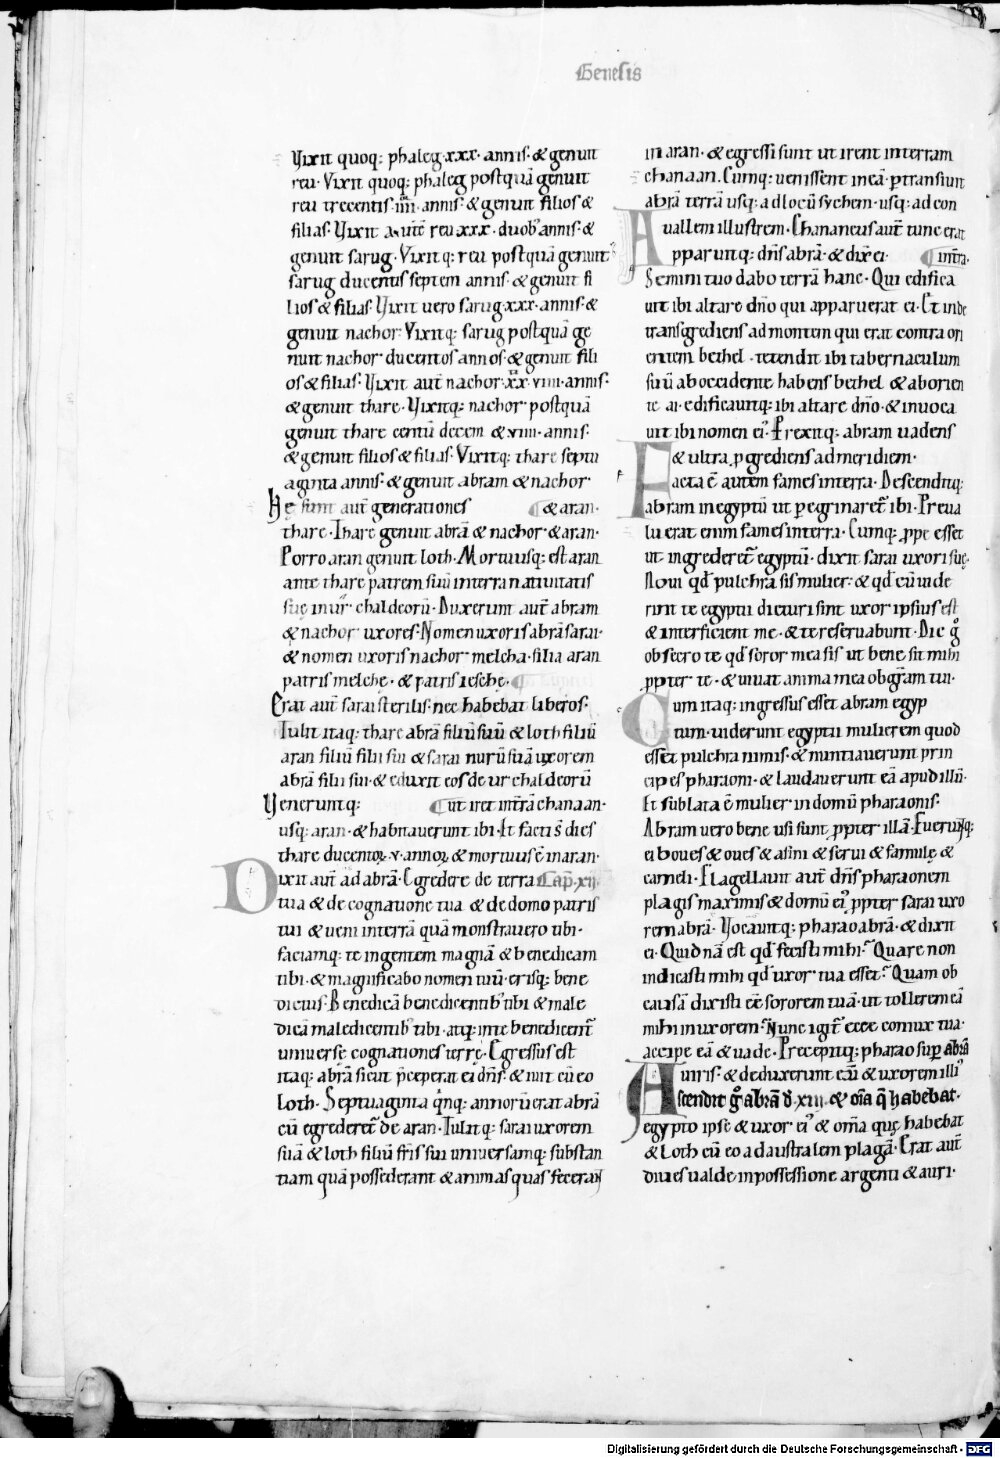 Genesis
Vixit quoq; phaleg .xxx. annis. & genuit
reu. Vixit quoq; phaleg postquã genuit
reu trecentis .iiii. annis. & genuit filios &
filias. Vixit autẽ reu .xxx. duob; annis. &
genuit sarug. Vixitq; reu postquã genuit
sarug ducentis septem annis. & genuit fi
lios & filias. Vixit uero sarug .xxx. annis. &
genuit nachor. Vixitq; sarug postquã ge
nuit nachor ducentos annos. & genuit fili
os & filias. Vixit aut̃ nachor .xx.viiii. annis.
& genuit thare. Vixitq; nachor postquã
genuit thare centũ decem & viiii. annis.
& genuit filios & filias. Vixitq; thare septu
aginta annis. & genuit abram & nachor
Hę sunt aut̃ generationes ¶ & aran.
thare. Thare genuit abrã & nachor & aran.
Porro aran genuit loth. Mortuusq; est aran
ante thare patrem suũ in terra natiuitatis
suę in ur chaldeorũ. Duxerunt aut̃ abram
& nachor uxores. Nomen uxoris abrã sarai.
& nomen uxoris nachor melcha. filia aran
patris melchę. & patris ieschę. ¶
Erat aut̃ sarai sterilis. nec habebat liberos.
Tulit itaq; thare abrã filiũ suũ & loth filiũ
aran filiũ filii sui & sarai nurũ suã uxorem
abrã filii sui. & eduxit eos de ur chaldeorũ
Veneruntq; ¶ ut iret in t̃rã chanaan.
usq; aran. & habitauerunt ibi. Et facti s̃ dies
thare ducentoꝝ .v. annoꝝ & mortuus ẽ in aran.
Dixit aut̃ ad abrã. Egredere de terra Cap̃. xii.
tua & de cognatione tua & de domo patris
tui & ueni in terrã quã monstrauero tibi.
faciamq; te in gentem magnã & benedicam
tibi. & magnificabo nomen tuũ. erisq; bene
dictus. Benedicã benedicentib; tibi & male
dicã maledicentib; tibi. atq; in te benedicent̃
uniuersę cognationes terrę. Egressus est
itaq; abrã sicut p̃ceperat ei dñs. & iuit cũ eo
Loth. Septuaginta q̃nq; annorũ erat abrã
cũ egrederet̃ de aran. Tulitq; sarai uxorem
suã & loth filiũ fr̃is sui uniuersamq; substan
tiam quã possederant & animas quas fecerant
in aran. & egressi sunt ut irent in terram
chanaan. Cumq; uenissent in eã. ꝑtransiuit
abrã terrã usq; ad locũ sychem. usq; ad con
uallem illustrem. Chananeus aut̃ tunc erat
Apparuitq; dñs abrã. & dix̃ ei. ¶ in t̃ra.
Semini tuo dabo terrã hanc. Qui edifica
uit ibi altare dño qui apparuerat ei. Et inde
transgrediens ad montem qui erat contra ori
entem bethel. tetendit ibi tabernaculum
suũ ab occidente habens bethel & ab orien
te ai. edificauitq; ibi altare dño. & inuoca
uit ibi nomen ei᾽. Prexitq; abram uadens
& ultra ꝓgrediens ad meridiem.
Facta ẽ autem fames in terra. Descenditq;
abram in egyptũ ut ꝑegrinaret̃ ibi. Preua
luerat enim fames in terra. Cumq; ꝓpe esset
ut ingrederet̃ egyptũ. dixit sarai uxori suę.
Noui qđ pulchra sis mulier. & qđ cũ uide
rint te egyptii dicturi sint uxor ipsius est
& interficient me. & te reseruabunt. Dic g̊
obsecro te qđ soror mea sis ut bene sit mihi
ꝓpter te. & uiuat anima mea ob gr̃am tui.
Cum itaq; ingressus esset abram egyp
tum. uiderunt egyptii mulierem quod
esset pulchra nimis. & nuntiauerunt prin
cipes pharaoni. & laudauerunt eã apud illũ.
Et sublata ẽ mulier in domũ pharaonis.
Abram uero bene usi sunt ꝓpter illã. Fueruntq;
ei boues & oues & asini & serui & famulę &
cameli. Flagellauit aut̃ dñs pharaonem
plagis maximis & domũ ei᾽ ꝓpter sarai uxo
rem abrã. Vocauitq; pharao abrã. & dixit
ei. Quidnã est qđ fecisti mihi? Quare non
indicasti mihi qđ uxor tua esset? Quam ob
causã dixisti eẽ sororem tuã. ut tollerem eã
mihi in uxorem? Nunc igit̃ ecce coniux tua.
accipe eã & uade. Precepitq; pharao suꝑ abrã
uiris. & deduxerunt eũ & uxorem illi᾽
Ascendit g̊ abrã d̵ .xiii. & om̃a q̃ habebat.
egypto ipse & uxor ei᾽ & om̃a quę habebat
& Loth cũ eo ad australem plagã. Erat aut̃
diues ualde in possessione argenti & auri.
Digitalisierung gefördert durch die Deutsche Forschungsgemeinschaft - DFG